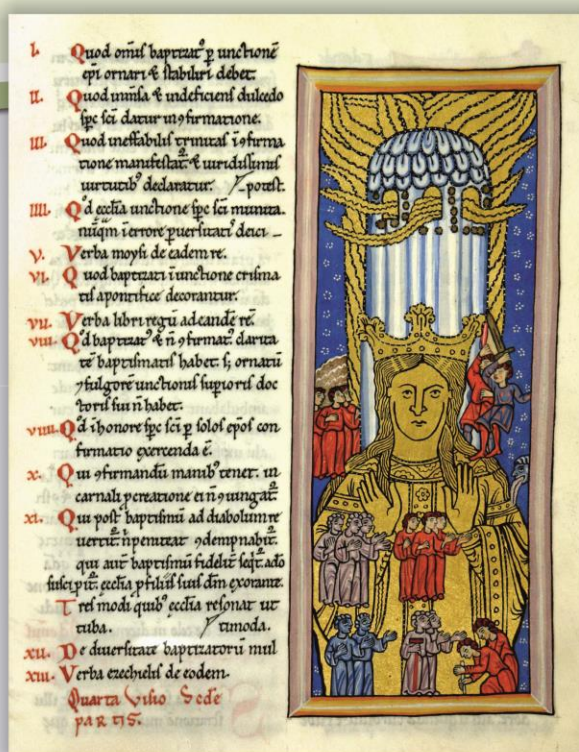 I. Quod omis baptizat' p unctionē
epi ornari & stabiliri debet.
II. Quod inmsa & indeficiens dulcedo
spc sci datur in ꝯfirmatione.
III. Quod ineffabilis trinitas i ꝯfirma
tione manifestat' & uiridissimis
uirtutib' declaratur. potest.
IIII. Qd ecclia unctione spc sci munita.
nūqm i errore puersitatis deici
V. Verba moysi de eadem re.
VI. Quod baptizati i unctione crisma
tis a pontifice decorantur.
VII. Verba libri regū ad eandē rē.
VIII. Qd baptizat' & ñ ꝯfirmat' clarita
tē baptismatis habet. s; ornatū
⁊ fulgorē unctionis supioris doc
toris sui ñ habet.
VIIII. Qd i honore spc sci p solos epos con
firmatio exercenda ē.
X. Qui ꝯfirmandū manib' tenet. in
carnali pcreatione ei ñ ꝯiungat'.
XI. Qui post baptismū ad diabolum re
uertit'. ñ peniteat ꝯdempnabit'.
qui aut baptismū fidelit' seqt'. a do
suscipit'. ecclia p filiis suis dm exorante.
Tres modi quib' ecclia resonat ut
tuba. timoda.
XII. De diuersitate baptizatorū mul
XIII. Verba ezechielis de eodem.
Quarta Visio Sede
partis.